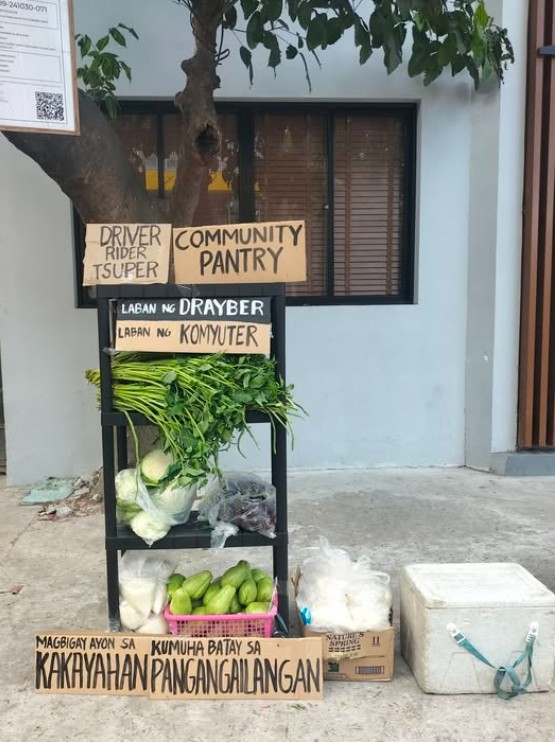 09-241030-071
DRIVER
RIDER
TSUPER
COMMUNITY
PANTRY
LABAN NG DRAYBER
LABAN NG KOMYUTER
NATURE'S
SPRING
MAGBIGAY AYON SA
KAKAYAHAN
KUMUHA BATAY SA
PANGANGAILANGAN